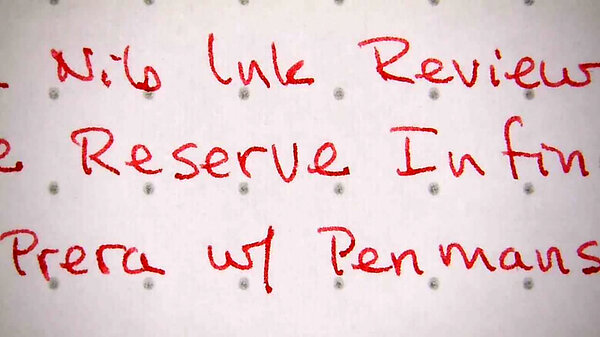 Nib Ink Review
e Reserve Infin
Prera w/ Penmans